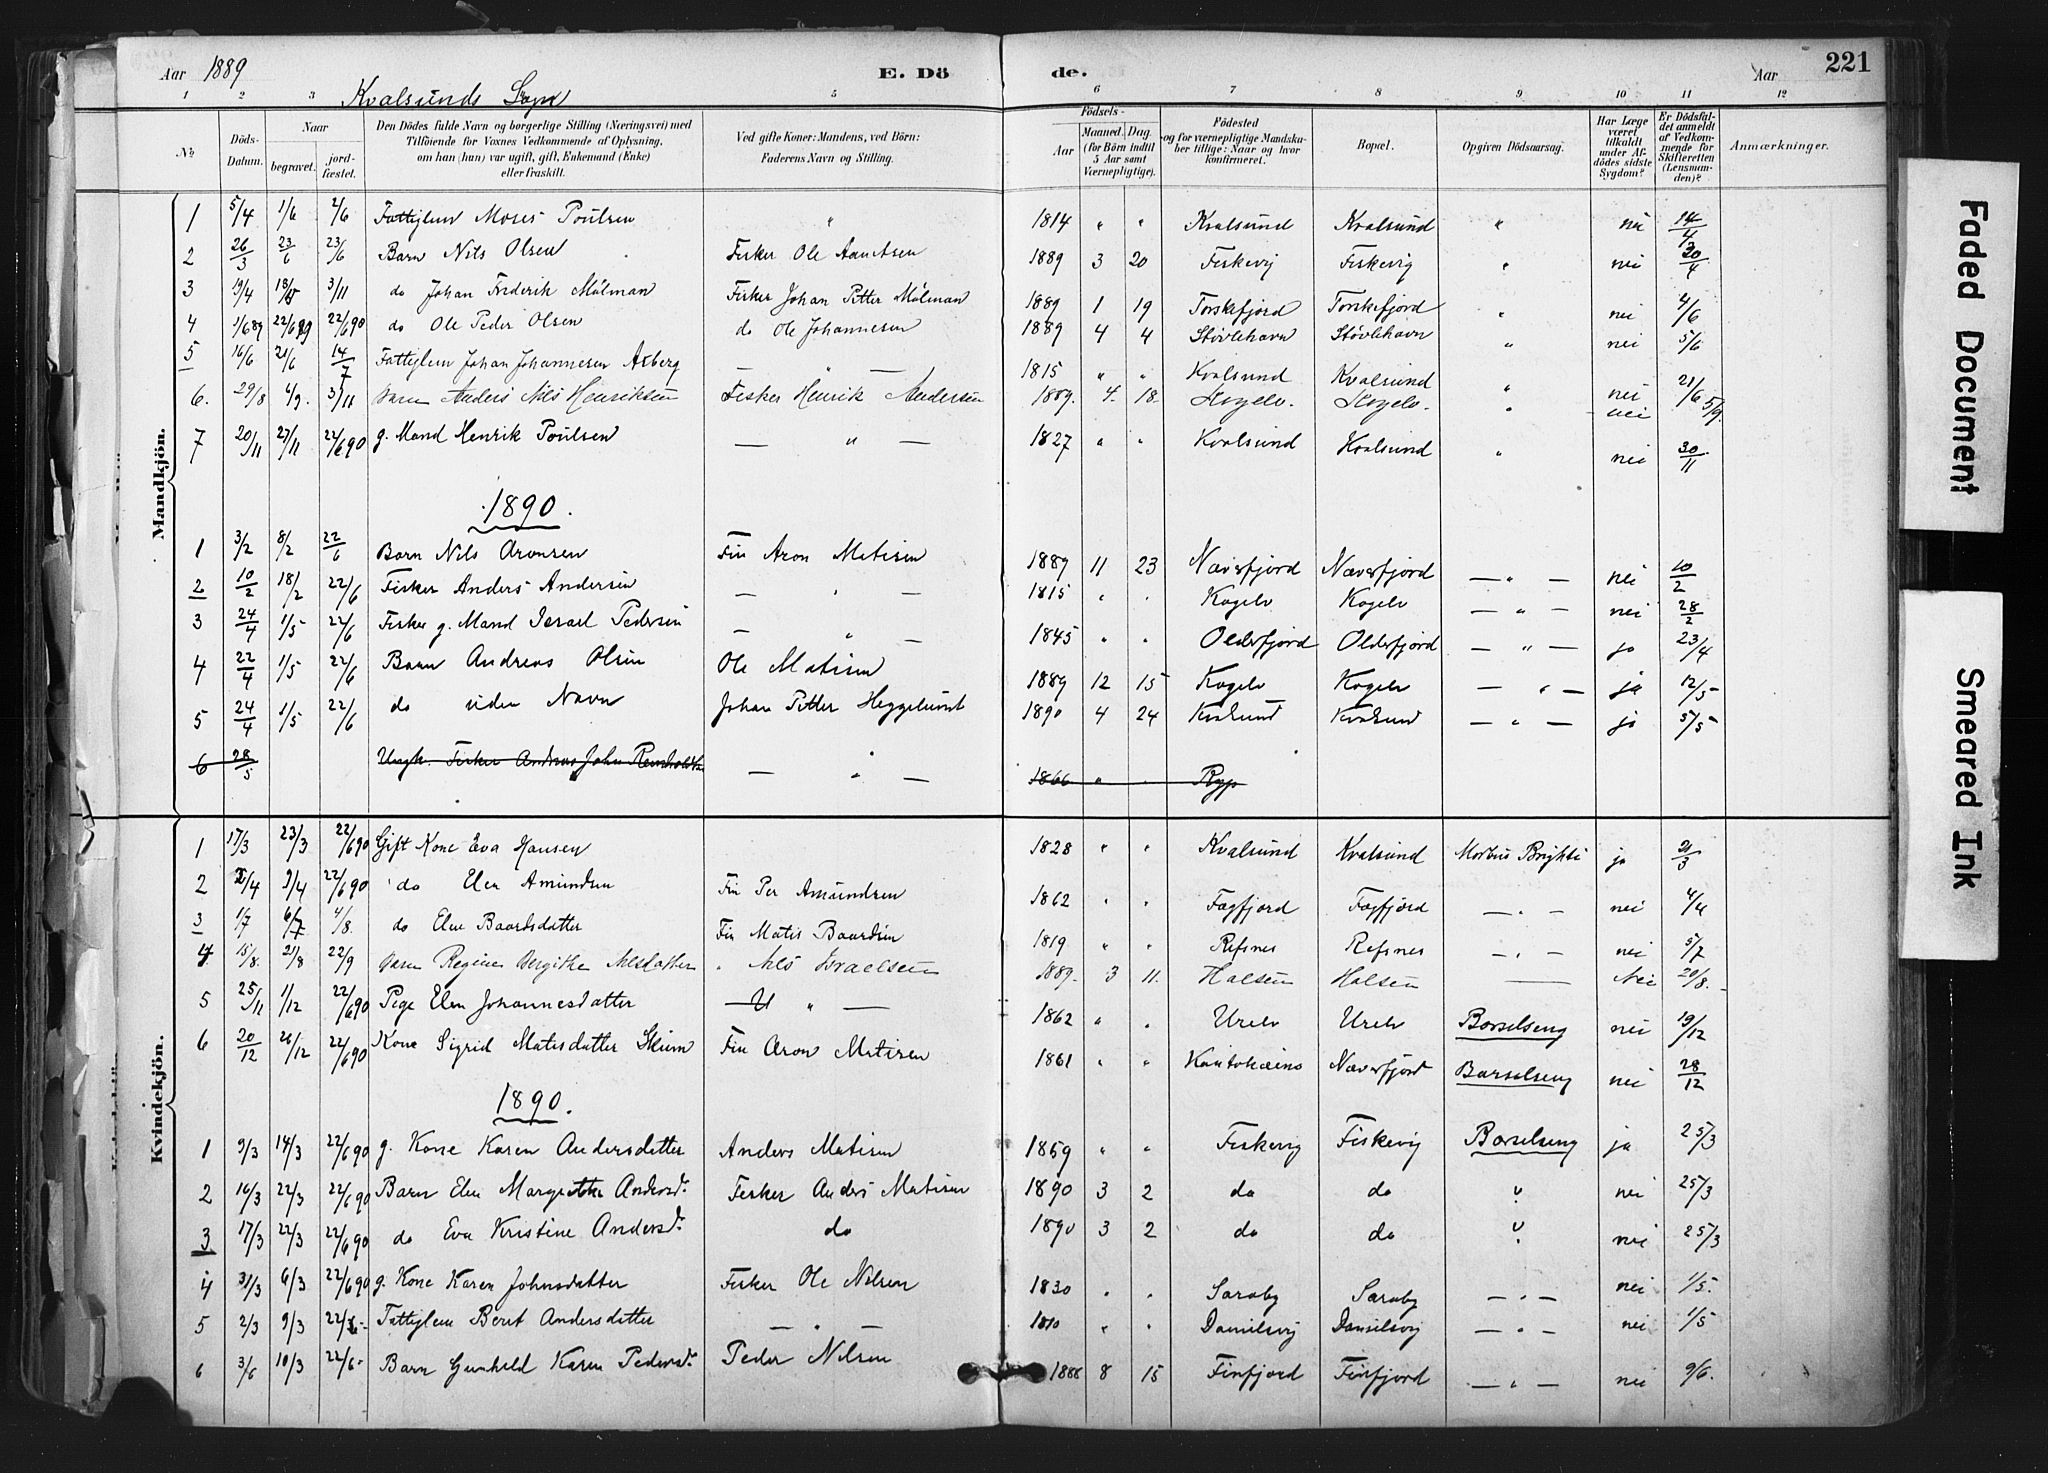 Aar 1889 E. Dö de. Aar 221
Kvalsunds Sogn
1 2 3 5 6 7 8 9 10 11 12
№ Döds-Datum. Naar begravet. jordfæstet. Den Dödes fulde Navn og borgerlige Stilling (Næringsvei) med Tilföiende for Voxnes Vedkommende af Oplysning, om han (hun) var ugift, gift, Enkemand (Enke) eller fraskilt. Ved gifte Koner: Mandens, ved Börn: Faderens Navn og Stilling. Födsels- Aar Maaned. Dag. (for Börn indtil 5 Aar samt Værnepligtige). Födested og for værnepligtige Mandskaber tillige: Naar og hvor konfirmeret. Bopæl. Opgiven Dödsaarsag. Har Læge været tilkaldt under Afdödes sidste Sygdom? Er Dödsfaldet anmeldt af Vedkommende for Skifteretten (Lensmanden)? Anmærkninger.
Mandkjön.
1 5/4 1/6 2/6 Fattiglem Moses Poulsen " 1814 " " Kvalsund Kvalsund " nei 14/4
2 26/3 23/6 23/6 Barn Nils Olsen Fisker Ole 1889 3 20 Fiskevig Fiskevig " nei 20/4
3 19/4 3/11 do Johan Frederik Mölman Fisker Johan Petter Mölman 1889 1 19 Torskefjord Torskefjord " nei 4/6
4 1/6 89 22/6 89 22/6 90 do Ole Peder Olsen do Ole Johannesen 1889 4 4 Stövlehavn Stövlehavn " nei 5/6
5 16/6 21/6 14/7 Fattiglem Johan Johannesen Axberg — 1815 " " Kvalsund Kvalsund " nei 21/6
6. 29/8 4/9. 3/11 Barn Anders Nils Henriksen Fisker Henrik Andersen 1889. 4. 18. Kogelv. Kogelv. " nei 5/9.
7 20/11 27/11 22/6 90 g. Mand Henrik Poulsen — " — 1827 " " Kvalsund Kvalsund " nei 30/11
1890.
1 3/2 8/2 22/6 Barn Nils Aronsen Fin Aron Matisen 1889 11 23 Næverfjord Næverfjord — " — nei 10/2
2 10/2 18/2 22/6 Fisker Anders Andersen — " — 1815 " " Kogelv Kogelv — " — nei 28/2
3 24/4 1/5 22/6 Fisker g. Mand Israel Pedersen — " — 1845 " " Olderfjord Olderfjord — " — ja 23/4
4 22/4 1/5 22/6 Barn Andreas Olsen Ole Matisen 1889 12 15 Kogelv Kogelv — " — ja 12/5
5 24/4 1/5 22/6 do uden Navn Johan Petter Heggelund 1890 4 24 Kvalsund Kvalsund — " — ja 5/5
6 28/5 Ungk. Fisker Andreas John — " — 1866 " " Ryp
Kvindekjön.
1 17/3 23/3 22/6 90 Gift Kone Eva Hansen 1828 " " Kvalsund Kvalsund Morbus Brighti ja 21/3
2 9/4 22/6 90 do Elen Amundsen Fin Per Amundsen 1862 " " Fagfjord Fagfjord — " — nei 4/4
3 1/7 6/7 4/8. do Elen Baardsdatter Fin Matis Baardsen 1819 " " Refsnes Refsnes — " — nei 5/7
4. 15/8. 21/8 22/9 Barn Regine Bergithe Nilsdatter " Nils Israelsen 1889. 3 11. Halsen Halsen — Nei 20/8.
5 25/11 1/12 22/6 90 Pige Elen Johannesdatter — " — 1862 " " Urelv Urelv Barselseng nei 19/12
6 20/12 26/12 22/6 90 Kone Sigrid Matisdatter Skum Fin Aron Matisen 1861 " " Kautokeino Næverfjord Barselseng nei 28/12
1890.
1 9/3 14/3 22/6 90 g. Kone Karen Andersdatter Anders Matisen 1859 " " Fiskevig Fiskevig Barselseng ja 25/3
2 16/3 22/3 22/6 90 Barn Elen Margrethe Andersd. Fisker Anders Matisen 1890 3 2 do do " nei 25/3
3 17/3 22/3 22/6 90 do Eva Kristine Andersd. do 1890 3 2 do do " nei 25/3
4 31/3 6/3 22/6 90 g. Kone Karen Johnsdatter Fisker Ole Nilsen 1830 " " Saraby Saraby — " — nei 1/5.
5 2/3 9/3 22/6 Fattiglem Beret Andersdatter — " — 1810 " " Danielsvig Danielsvig — " — nei 1/5
6 3/6 10/3 22/6 Barn Gunhild Karen Pedersd. Peder Nilsen 1886 8 15 Finfjord Finfjord — " — nei 9/6.
Faded Document
Smeared Ink